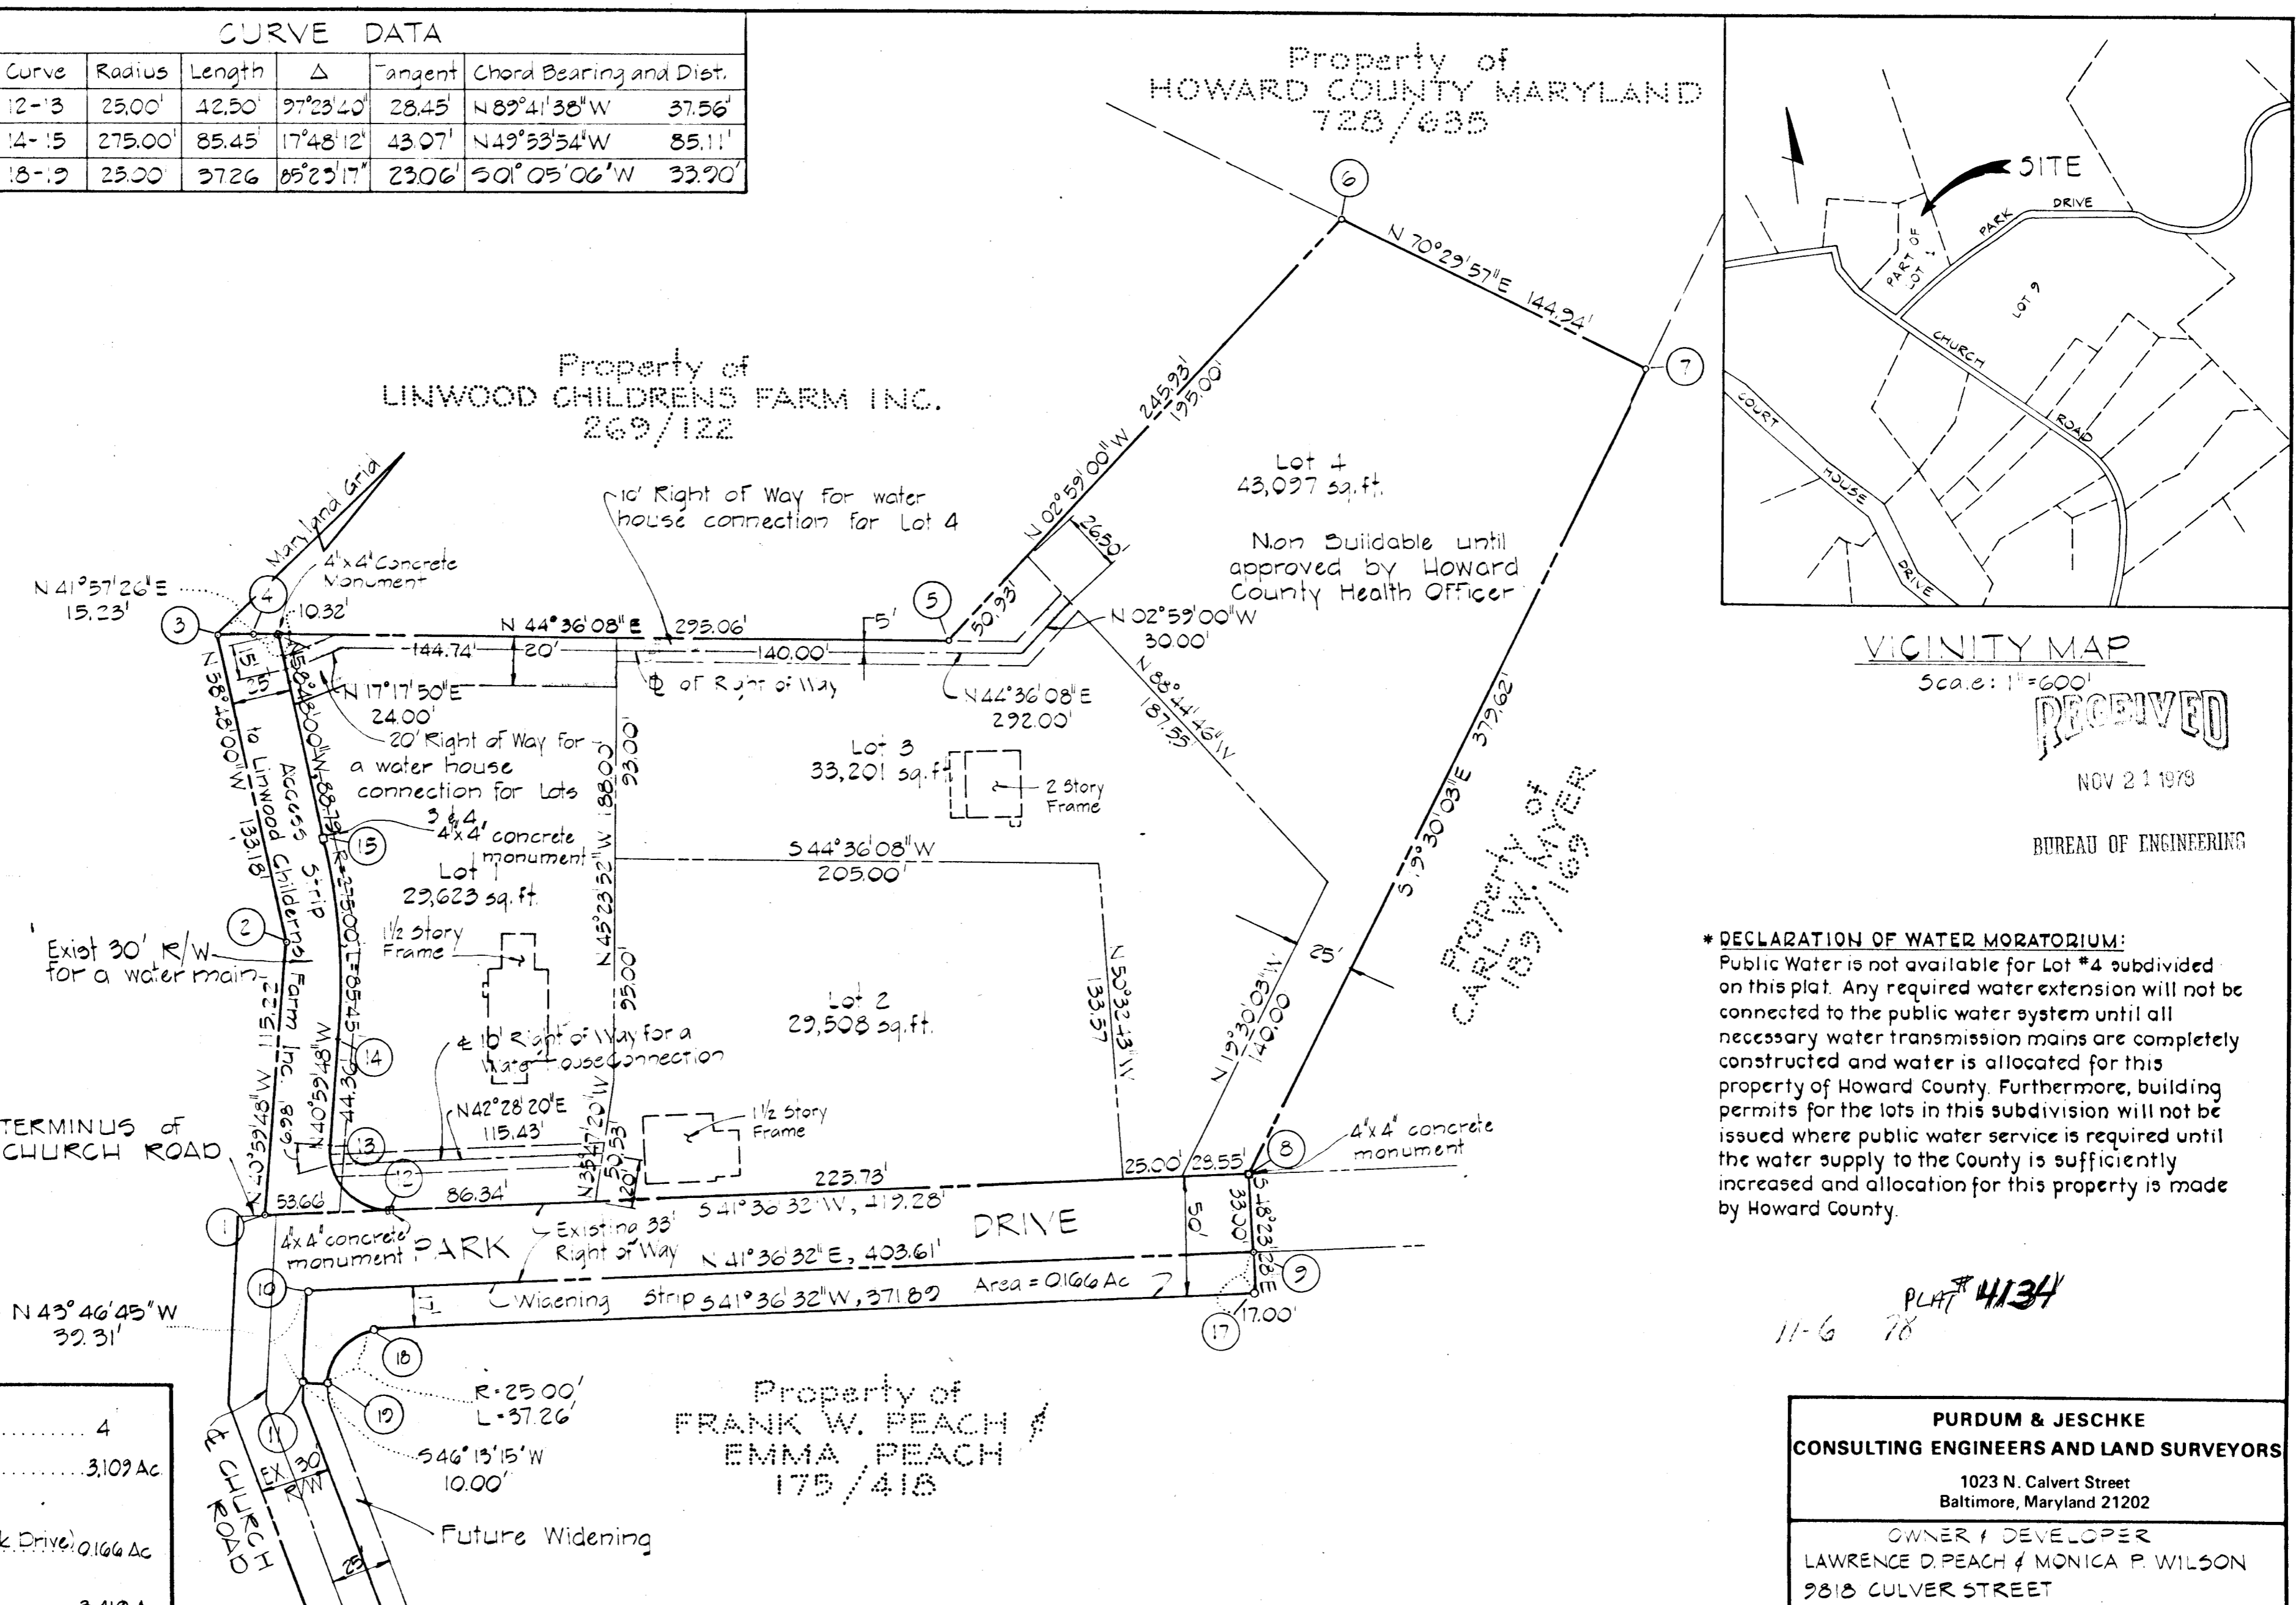 CURVE DATA
Curve Radius Length Δ Tangent Chord Bearing and Dist.
12-13 25.00' 42.50' 97°23'40" 28.45' N89°41'38"W 37.56'
14-15 275.00' 85.45' 17°48'12" 43.07' N49°53'54"W 85.11'
18-19 25.00' 37.26 85°23'17" 23.06' S01°05'06"W 33.90'
Property of
HOWARD COUNTY MARYLAND
728/635
6
N 70°29'57"E 144.94'
7
Property of
LINWOOD CHILDRENS FARM INC.
269/122
245.93'
N 02°59'00"W 195.00'
Lot 4
43,097 sq.ft.
Non Buildable until
approved by Howard
County Health Officer
Maryland Grid
10' Right of Way for water
house connection for Lot 4
4"x4" Concrete
Monument
N 41°57'26"E
15.23'
3
4
10.32'
N 44°36'08"E 295.06'
5
5'
50.93'
26.50'
N 02°59'00"W
30.00'
144.74'
20'
140.00'
15'
35'
N 17°17'50"E
24.00'
℄ of Right of Way
N44°36'08"E
292.00'
N 88°44'46"W
187.55'
S 19°30'03"E 379.62'
20' Right of Way for
a water house
connection for Lots
3 & 4
4"x4" concrete
monument
N 58°48'00"W 133.18'
N58°48'00"W, 88.79'
Access Strip
to Linwood Childerns Farm Inc.
15
R=275.00', L=85.45'
Lot 1
29,623 sq.ft.
1½ Story
Frame
N 45°23'52"W 188.00
93.00'
95.00'
Lot 3
33,201 sq.ft.
2 Story
Frame
S 44°36'08"W
205.00'
Property of
CARL W. MAYER
189/169
2
Exist 30' R/W
for a water main
N 40°59'48"W 115.22'
N40°59'48"W
44.36'
14
6.98'
Lot 2
29,508 sq.ft.
N 50°32'43"W
133.57
N 19°30'03"W
140.00
25'
℄ 10' Right of Way for a
Water House Connection
N42°28'20"E
115.43'
N35°47'20"W
50.53'
20'
1½ Story
Frame
TERMINUS of
CHURCH ROAD
13
12
1
53.66'
86.34'
225.73'
25.00'
28.55'
8
4"x4" concrete
monument
S 41°36'32"W, 419.28'
4"x4" concrete
monument
PARK DRIVE
Existing 33'
Right of Way
N 41°36'32"E, 403.61'
50'
S 48°23'28"E
33.00'
9
10
17'
Widening Strip S41°36'32"W, 371.89 Area = 0.166 Ac
17.00'
17
N 43°46'45"W
39.31'
18
R=25.00'
L=37.26'
19
11
S46°13'15"W
10.00'
EX. 30'
R/W
℄ CHURCH
ROAD
25'
Future Widening
Property of
FRANK W. PEACH &
EMMA PEACH
175/418
4
3.109 Ac.
Drive) 0.166 Ac
SITE
PARK DRIVE
PART OF
LOT 1
LOT 9
CHURCH ROAD
COURT HOUSE DRIVE
VICINITY MAP
Scale: 1"=600'
RECEIVED
NOV 21 1978
BUREAU OF ENGINEERING
* DECLARATION OF WATER MORATORIUM:
Public Water is not available for Lot #4 subdivided
on this plat. Any required water extension will not be
connected to the public water system until all
necessary water transmission mains are completely
constructed and water is allocated for this
property of Howard County. Furthermore, building
permits for the lots in this subdivision will not be
issued where public water service is required until
the water supply to the County is sufficiently
increased and allocation for this property is made
by Howard County.
PLAT # 4134
11-6 78
PURDUM & JESCHKE
CONSULTING ENGINEERS AND LAND SURVEYORS
1023 N. Calvert Street
Baltimore, Maryland 21202
OWNER & DEVELOPER
LAWRENCE D. PEACH & MONICA P. WILSON
9818 CULVER STREET